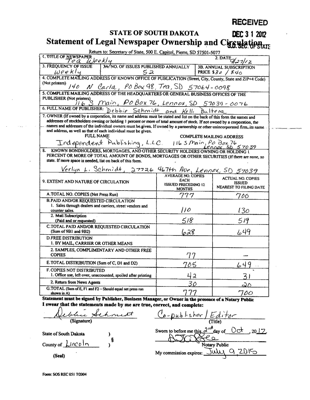 RECEIVED
DEC 31 2012
S.D. SEC. OF STATE
STATE OF SOUTH DAKOTA
Statement of Legal Newspaper Ownership and Circulation
Return to: Secretary of State, 500 E. Capitol, Pierre, SD 57501-5077
1. TITLE OF NEWSPAPER
Tea Weekly
2. DATE
1. FREQUENCY OF ISSUE
Weekly
3A. NO. OF ISSUES PUBLISHED ANNUALLY
52
3B. ANNUAL SUBSCRIPTION
PRICE $30 / $40
4. COMPLETE MAILING ADDRESS OF KNOWN OFFICE OF PUBLICATION (Street, City, County, State and ZIP+4 Code)
(Not printers)
140 N Carla, PO Box 98 Tea, SD 57064-0098
5. COMPLETE MAILING ADDRESS OF THE HEADQUARTERS OR GENERAL BUSINESS OFFICES OF THE
PUBLISHER (Not printers)
116 S Main, PO Box 76, Lennox, SD 57039-0076
6. FULL NAME OF PUBLISHER: Debbie Schmidt and Kelli Bultena
7. OWNER (If owned by a corporation, its name and address must be stated and list on the back of this form the names and
address of stockholders owning or holding 1 percent or more of total amount of stock. If not owned by a corporation, the
names and addresses of the individual owners must be given. If owned by a partnership or other unincorporated firm, its name
and address, as well as that of each individual must be given.
FULL NAME
COMPLETE MAILING ADDRESS
Independent Publishing, LLC 116 S Main, Po Box 76
Lennox, SD 57039
8. KNOWN BONDHOLDERS, MORTGAGEES, AND OTHER SECURITY HOLDERS OWNING OR HOLDING 1
PERCENT OR MORE OF TOTAL AMOUNT OF BONDS, MORTGAGES OR OTHER SECURITIES (If there are none, so
state. If more space is needed, list on back of this form.
Verlyn L. Schmidt, 27726 467th Ave, Lennox, SD 57039
9. EXTENT AND NATURE OF CIRCULATION
AVERAGE NO. COPIES
EACH
ISSUED PRECEDING 12
MONTHS
ACTUAL NO. COPIES
ISSUED
NEAREST TO FILING DATE
A. TOTAL NO. COPIES (Net Press Run)
777
700
B. PAID AND/OR REQUESTED CIRCULATION
1. Sales through dealers and carriers, street vendors and
counter sales
110
130
2. Mail Subscription
(Paid and or requested)
518
519
C. TOTAL PAID AND/OR REQUESTED CIRCULATION
(Sum of 9B1 and 9B2)
628
649
D. FREE DISTRIBUTION
1. BY MAIL, CARRIER OR OTHER MEANS
2. SAMPLES, COMPLIMENTARY AND OTHER FREE
COPIES
77
E. TOTAL DISTRIBUTION (Sum of C, D1 and D2)
705
649
F. COPIES NOT DISTRIBUTED
1. Office use, left over, unaccounted, spoiled after printing
42
31
2. Return from News Agents
30
20
G. TOTAL (Sum of E, F1 and F2 - Should equal net press run
shown in A)
777
700
Statement must be signed by Publisher, Business Manager, or Owner in the presence of a Notary Public
I swear that the statements made by me are true, correct, and complete:
Debbie Schmidt
(Signature)
Co-publisher / Editor
(Title)
State of South Dakota )
County of Lincoln )
§
(Seal)
Sworn to before me this 2nd day of Oct 2012
Notary Public
My commission expires: July 9 2015
Form: SOS REC 051 7/2004